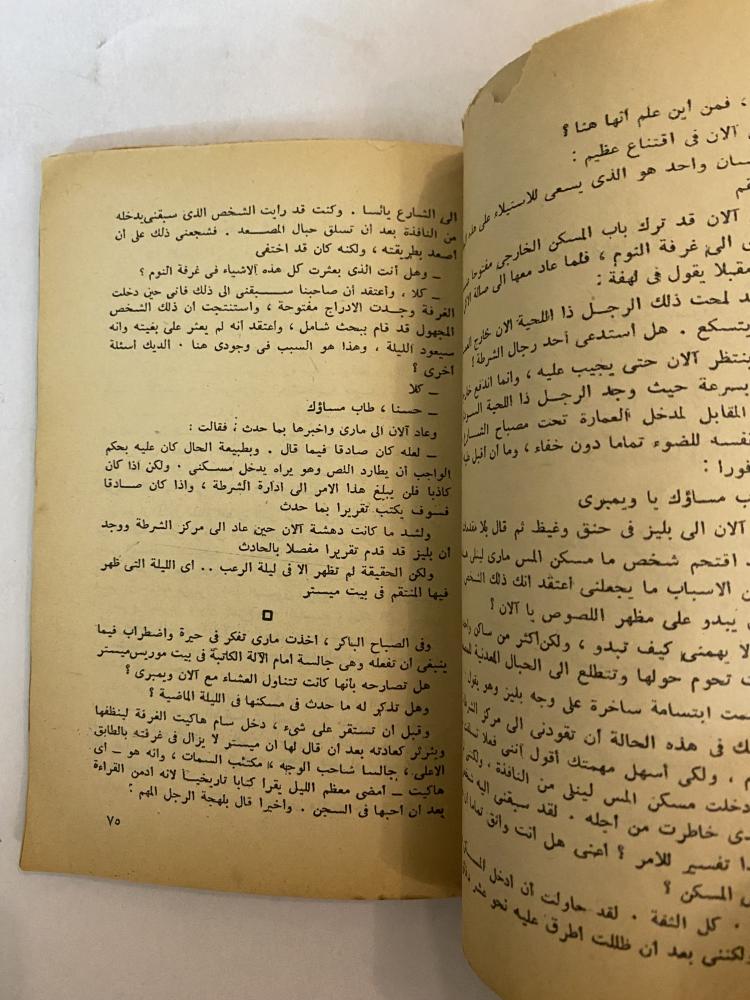 ، فمن اين علم انها هنا ؟
آلان فى اقتناع عظيم :
سان واحد هو الذى يسعى للاستيلاء على
قم
آلان قد ترك باب المسكن الخارجى مفتوحا
ى الى غرفة النوم ، فلما عاد معها الى صالة
مقبلا يقول فى لهفة :
د لمحت ذلك الرجل ذا اللحية الآن خارج
يتسكع . هل استدعى أحد رجال الشرطة !
ينتظر آلان حتى يجيب عليه ، وانما اندفع
بسرعة حيث وجد الرجل ذا اللحية
المقابل لمدخل العمارة تحت مصباح
نفسه للضوء تماما دون خفاء ، وما أن أقبل
فورا :
ب مساؤك يا ويمبرى
آلان الى بليز فى حنق وغيظ ثم قال بلا
د اقتحم شخص ما مسكن المس مارى
ن الاسباب ما يجعلنى أعتقد انك ذلك
يبدو على مظهر اللصوص يا آلان ؟
لا يهمنى كيف تبدو ، ولكن اكثر من ساكن
ت تحوم حولها وتتطلع الى الحبال المعدنية
مت ابتسامة ساخرة على وجه بليز وهو يقول
ك فى هذه الحالة أن تقودنى الى مركز
م ، ولكى أسهل مهمتك أقول أننى فعلا
دخلت مسكن المس لينلى من النافذة ، ولكنى
دى خاطرت من أجله . لقد سبقنى اليه
ذا تفسير للامر ؟ أعنى هل انت واثق تماما
س المسكن ؟
. كل الثقة . لقد حاولت أن ادخل
ولكننى بعد ان ظللت اطرق عليه نحو عشر
الى الشارع يائسا . وكنت قد رايت الشخص الذى سبقنى يدخله
من النافذة بعد ان تسلق حبال المصعد . فشجعنى ذلك على أن
أصعد بطريقته ، ولكنه كان قد اختفى
ــ وهل أنت الذى بعثرت كل هذه الاشياء فى غرفة النوم ؟
ــ كلا ، واعتقد أن صاحبنا سبقنى الى ذلك فانى حين دخلت
الغرفة وجدت الادراج مفتوحة ، واستنتجت ان ذلك الشخص
المجهول قد قام ببحث شامل ، واعتقد أنه لم يعثر على بغيته وانه
سيعود الليلة ، وهذا هو السبب فى وجودى هنا . الديك أسئلة
اخرى ؟
ــ كلا
ــ حسنا ، طاب مساؤك
وعاد آلان الى مارى واخبرها بما حدث ، فقالت :
ــ لعله كان صادقا فيما قال . وبطبيعة الحال كان عليه بحكم
الواجب أن يطارد اللص وهو يراه يدخل مسكنى . ولكن اذا كان
كاذبا فلن يبلغ هذا الامر الى ادارة الشرطة ، واذا كان صادقا
فسوف يكتب تقريرا بما حدث
ولشد ما كانت دهشة آلان حين عاد الى مركز الشرطة ووجد
أن بليز قد قدم تقريرا مفصلا بالحادث
ولكن الحقيقة لم تظهر الا فى ليلة الرعب .. اى الليلة التى ظهر
فيها المنتقم فى بيت ميستر
وفى الصباح الباكر ، اخذت مارى تفكر فى حيرة واضطراب فيما
ينبغى ان تفعله وهى جالسة امام الآلة الكاتبة فى بيت موريس ميستر
هل تصارحه بانها كانت تتناول العشاء مع آلان ويمبرى ؟
وهل تذكر له ما حدث فى مسكنها فى الليلة الماضية ؟
وقبل ان تستقر على شىء ، دخل سام هاكيت الغرفة لينظفها
ويثرثر كعادته بعد ان قال لها ان ميستر لا يزال فى غرفته بالطابق
الاعلى ، جالسا شاحب الوجه ، مكتئب السمات ، وانه هو ــ اى
هاكيت ــ أمضى معظم الليل يقرأ كتابا تاريخيا لانه ادمن القراءة
بعد ان احبها فى السجن . واخيرا قال بلهجة الرجل المهم :
٧٥